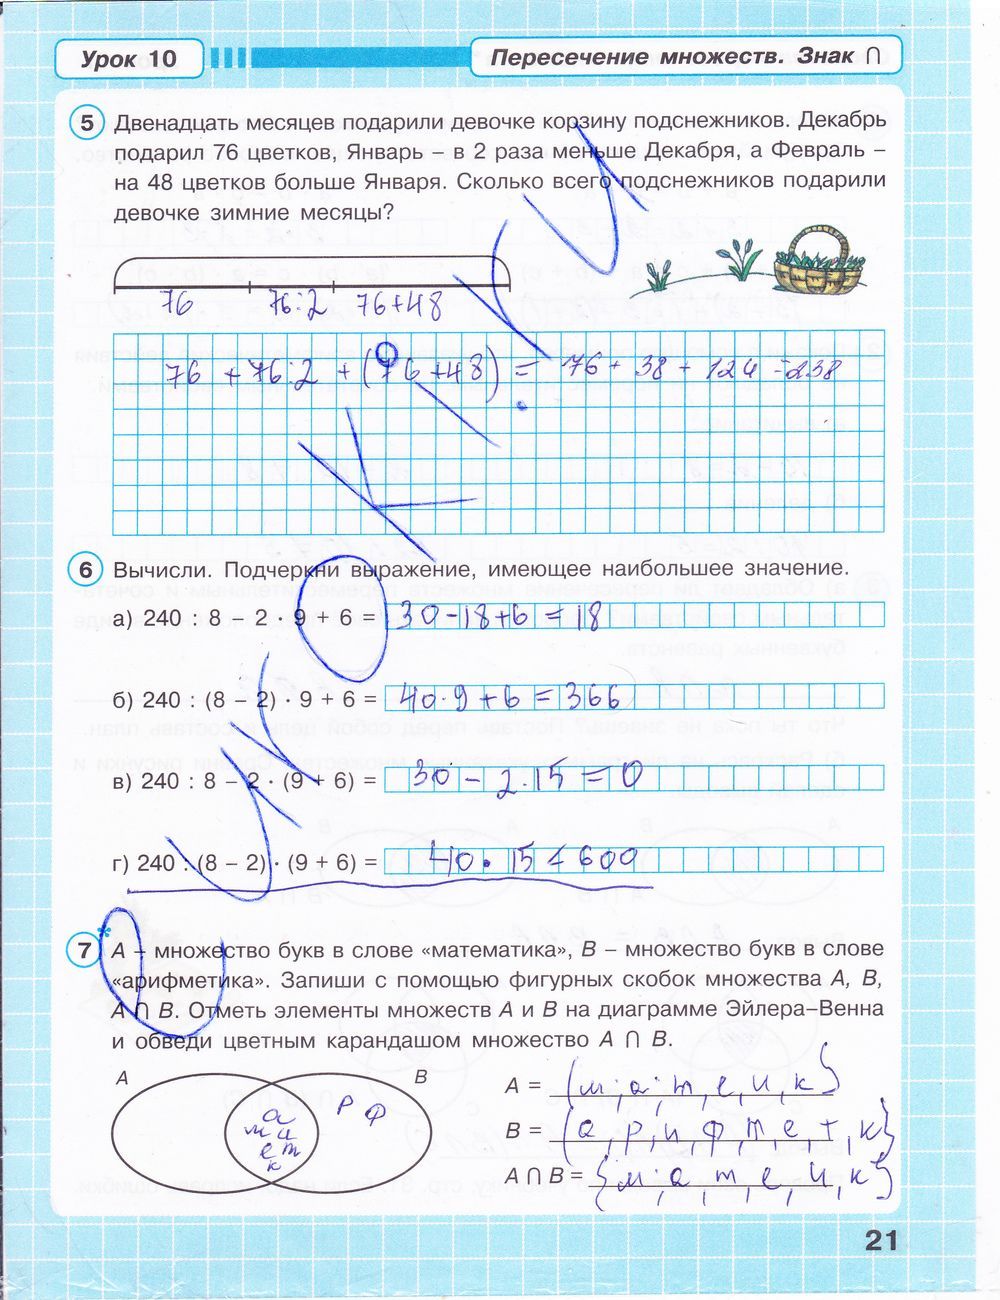 Урок 10
Пересечение множеств. Знак ∩
5 Двенадцать месяцев подарили девочке корзину подснежников. Декабрь
подарил 76 цветков, Январь – в 2 раза меньше Декабря, а Февраль –
на 48 цветков больше Января. Сколько всего подснежников подарили
девочке зимние месяцы?
76 76:2 76+48
76 + 76:2 + (76 + 48) = 76 + 38 + 124 = 238
6 Вычисли. Подчеркни выражение, имеющее наибольшее значение.
а) 240 : 8 – 2 · 9 + 6 = 30 - 18 + 6 = 18
б) 240 : (8 – 2) · 9 + 6 = 40 · 9 + 6 = 366
в) 240 : 8 – 2 · (9 + 6) = 30 - 2 . 15 = 0
г) 240 : (8 – 2) · (9 + 6) = 40 · 15 = 600
7* A – множество букв в слове «математика», B – множество букв в слове
«арифметика». Запиши с помощью фигурных скобок множества A, B,
A ∩ B. Отметь элементы множеств A и B на диаграмме Эйлера–Венна
и обведи цветным карандашом множество A ∩ B.
A B
а
м и
е т
к
р ф
A = {м, а, т, е, и, к}
B = {а, р, и, ф, м, е, т, к}
A ∩ B = {м, а, т, е, и, к}
21